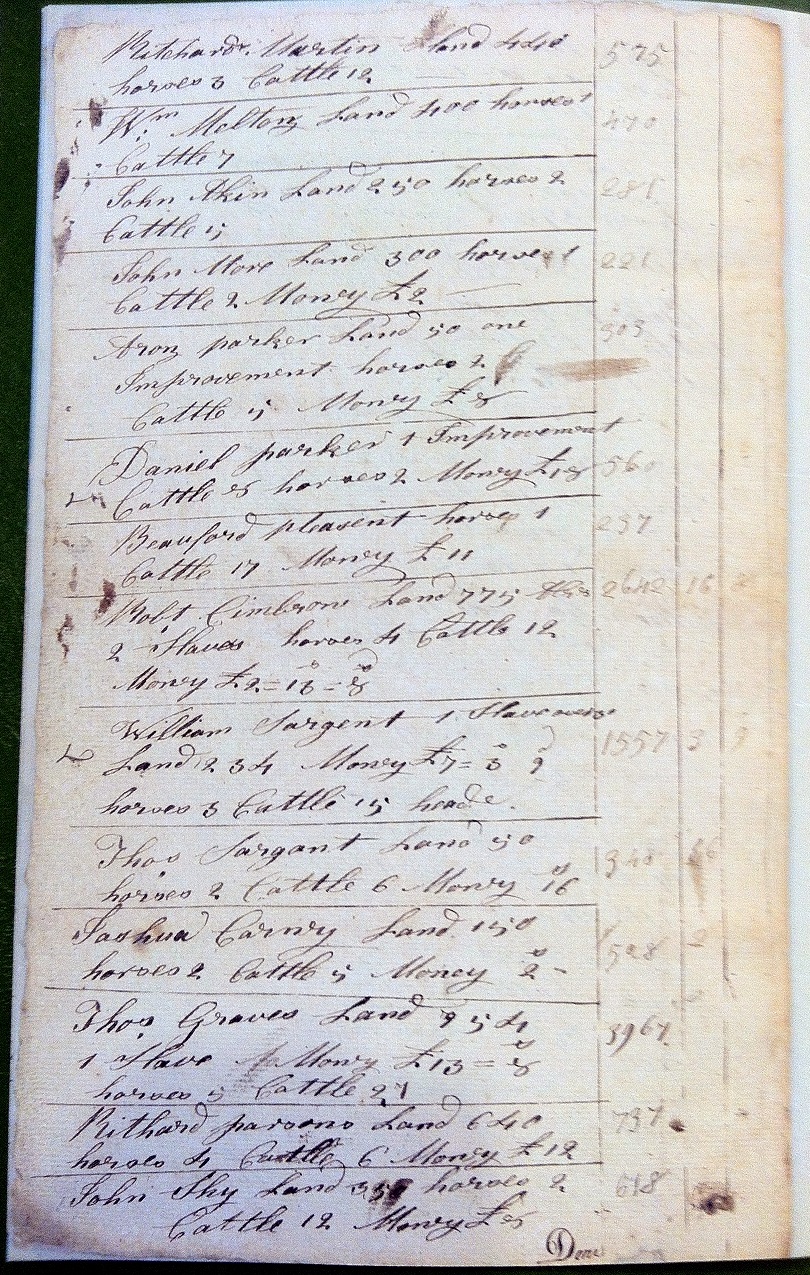 Ritchard Martin Land 440 575
horses 3 Cattle 12
Wm Melton Land 400 horses 1 470
Cattle 7
John Akin Land 250 horses 2 285
Cattle 5
John More Land 300 horses 1 221
Cattle 2 Money £2
Aron parker Land 50 one 303
Improvement horses 2
Cattle 5 Money £8
Daniel parker 1 Improvement
Cattle 8 horses 2 Money £18 560
Beauford pleasent horses 1 237
Cattle 17 Money £11
Robt Cimbrow Land 775 2642 16
2 Slaves horses 4 Cattle 12
Money £2=18=8
William Sargent 1 Slave
Land 234 Money £7=3 9 1557 3 9
horses 3 Cattle 15 heade.
Thos Sargant Land 50
horses 2 Cattle 6 Money 16 348 16
Joshua Carney Land 150
horses 2 Cattle 5 Money 2 - 528 2
Thos Graves Land 954
1 Slave Mony £13=8 3967
horses 5 Cattle 27
Ritchard parsons Land 640 737
horses 4 Cattle 6 Money £12
John Shy Land 350 horses 2 618
Cattle 12 Money £8
Done